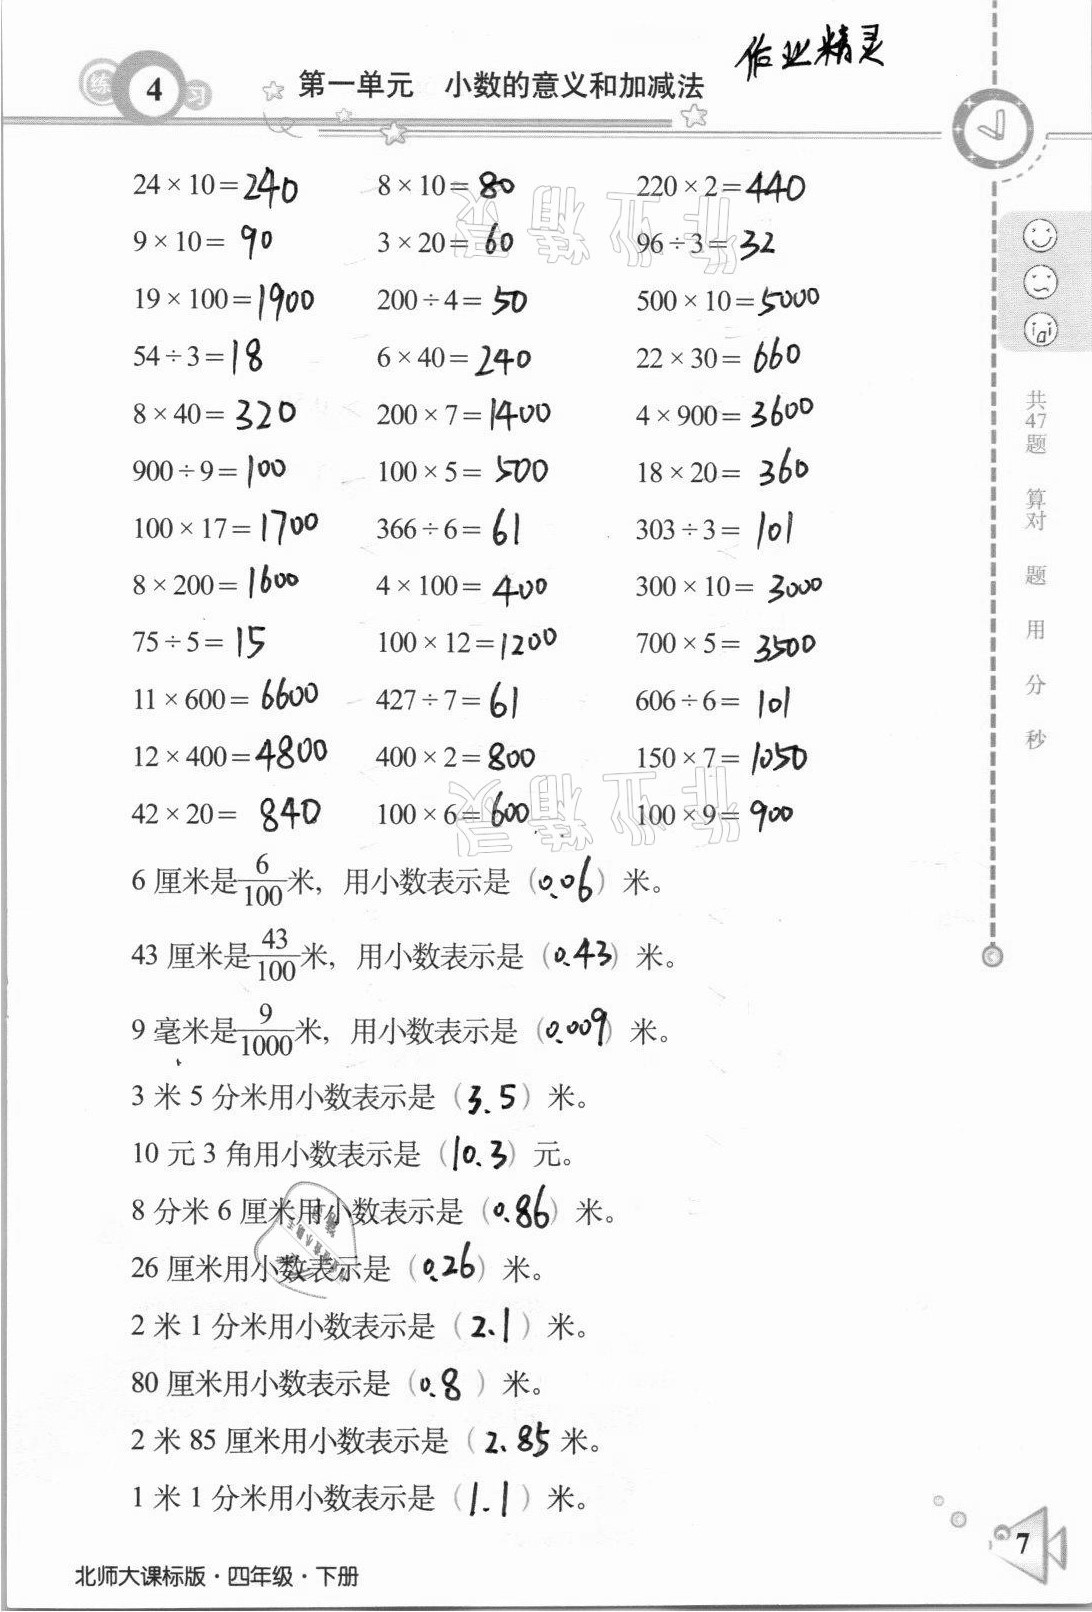 作业精灵
练习 4 第一单元 小数的意义和加减法
24×10=240 8×10=80 220×2=440
9×10=90 3×20=60 96÷3=32
19×100=1900 200÷4=50 500×10=5000
54÷3=18 6×40=240 22×30=660
8×40=320 200×7=1400 4×900=3600
900÷9=100 100×5=500 18×20=360
100×17=1700 366÷6=61 303÷3=101
8×200=1600 4×100=400 300×10=3000
75÷5=15 100×12=1200 700×5=3500
11×600=6600 427÷7=61 606÷6=101
12×400=4800 400×2=800 150×7=1050
42×20=840 100×6=600 100×9=900
6厘米是6/100米，用小数表示是（0.06）米。
43厘米是43/100米，用小数表示是（0.43）米。
9毫米是9/1000米，用小数表示是（0.009）米。
3米5分米用小数表示是（3.5）米。
10元3角用小数表示是（10.3）元。
8分米6厘米用小数表示是（0.86）米。
26厘米用小数表示是（0.26）米。
2米1分米用小数表示是（2.1）米。
80厘米用小数表示是（0.8）米。
2米85厘米用小数表示是（2.85米。
1米1分米用小数表示是（1.1）米。
共47题 算对 题 用 分 秒
作业精灵
作业精灵
北师大课标版·四年级·下册
7